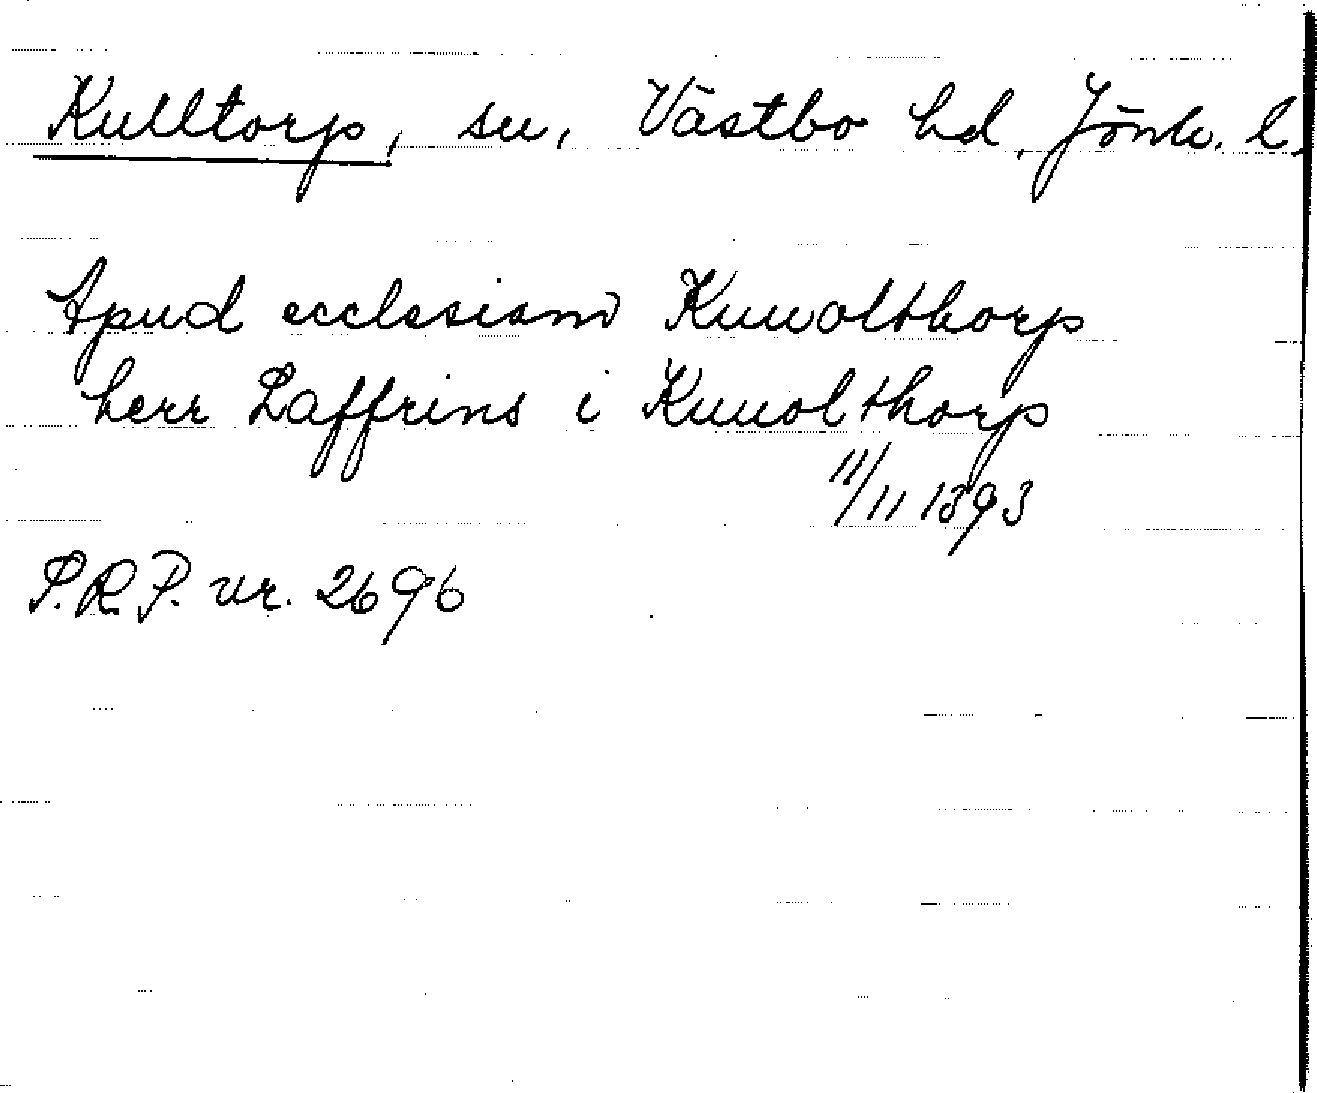 Kulltorp, sn, Västbo hd, Jönk. l.
Apud ecclesiam Kuwolthorp
herr Laffrins i Kuuolthorp
11/11 1393
S.R.P. nr. 2696